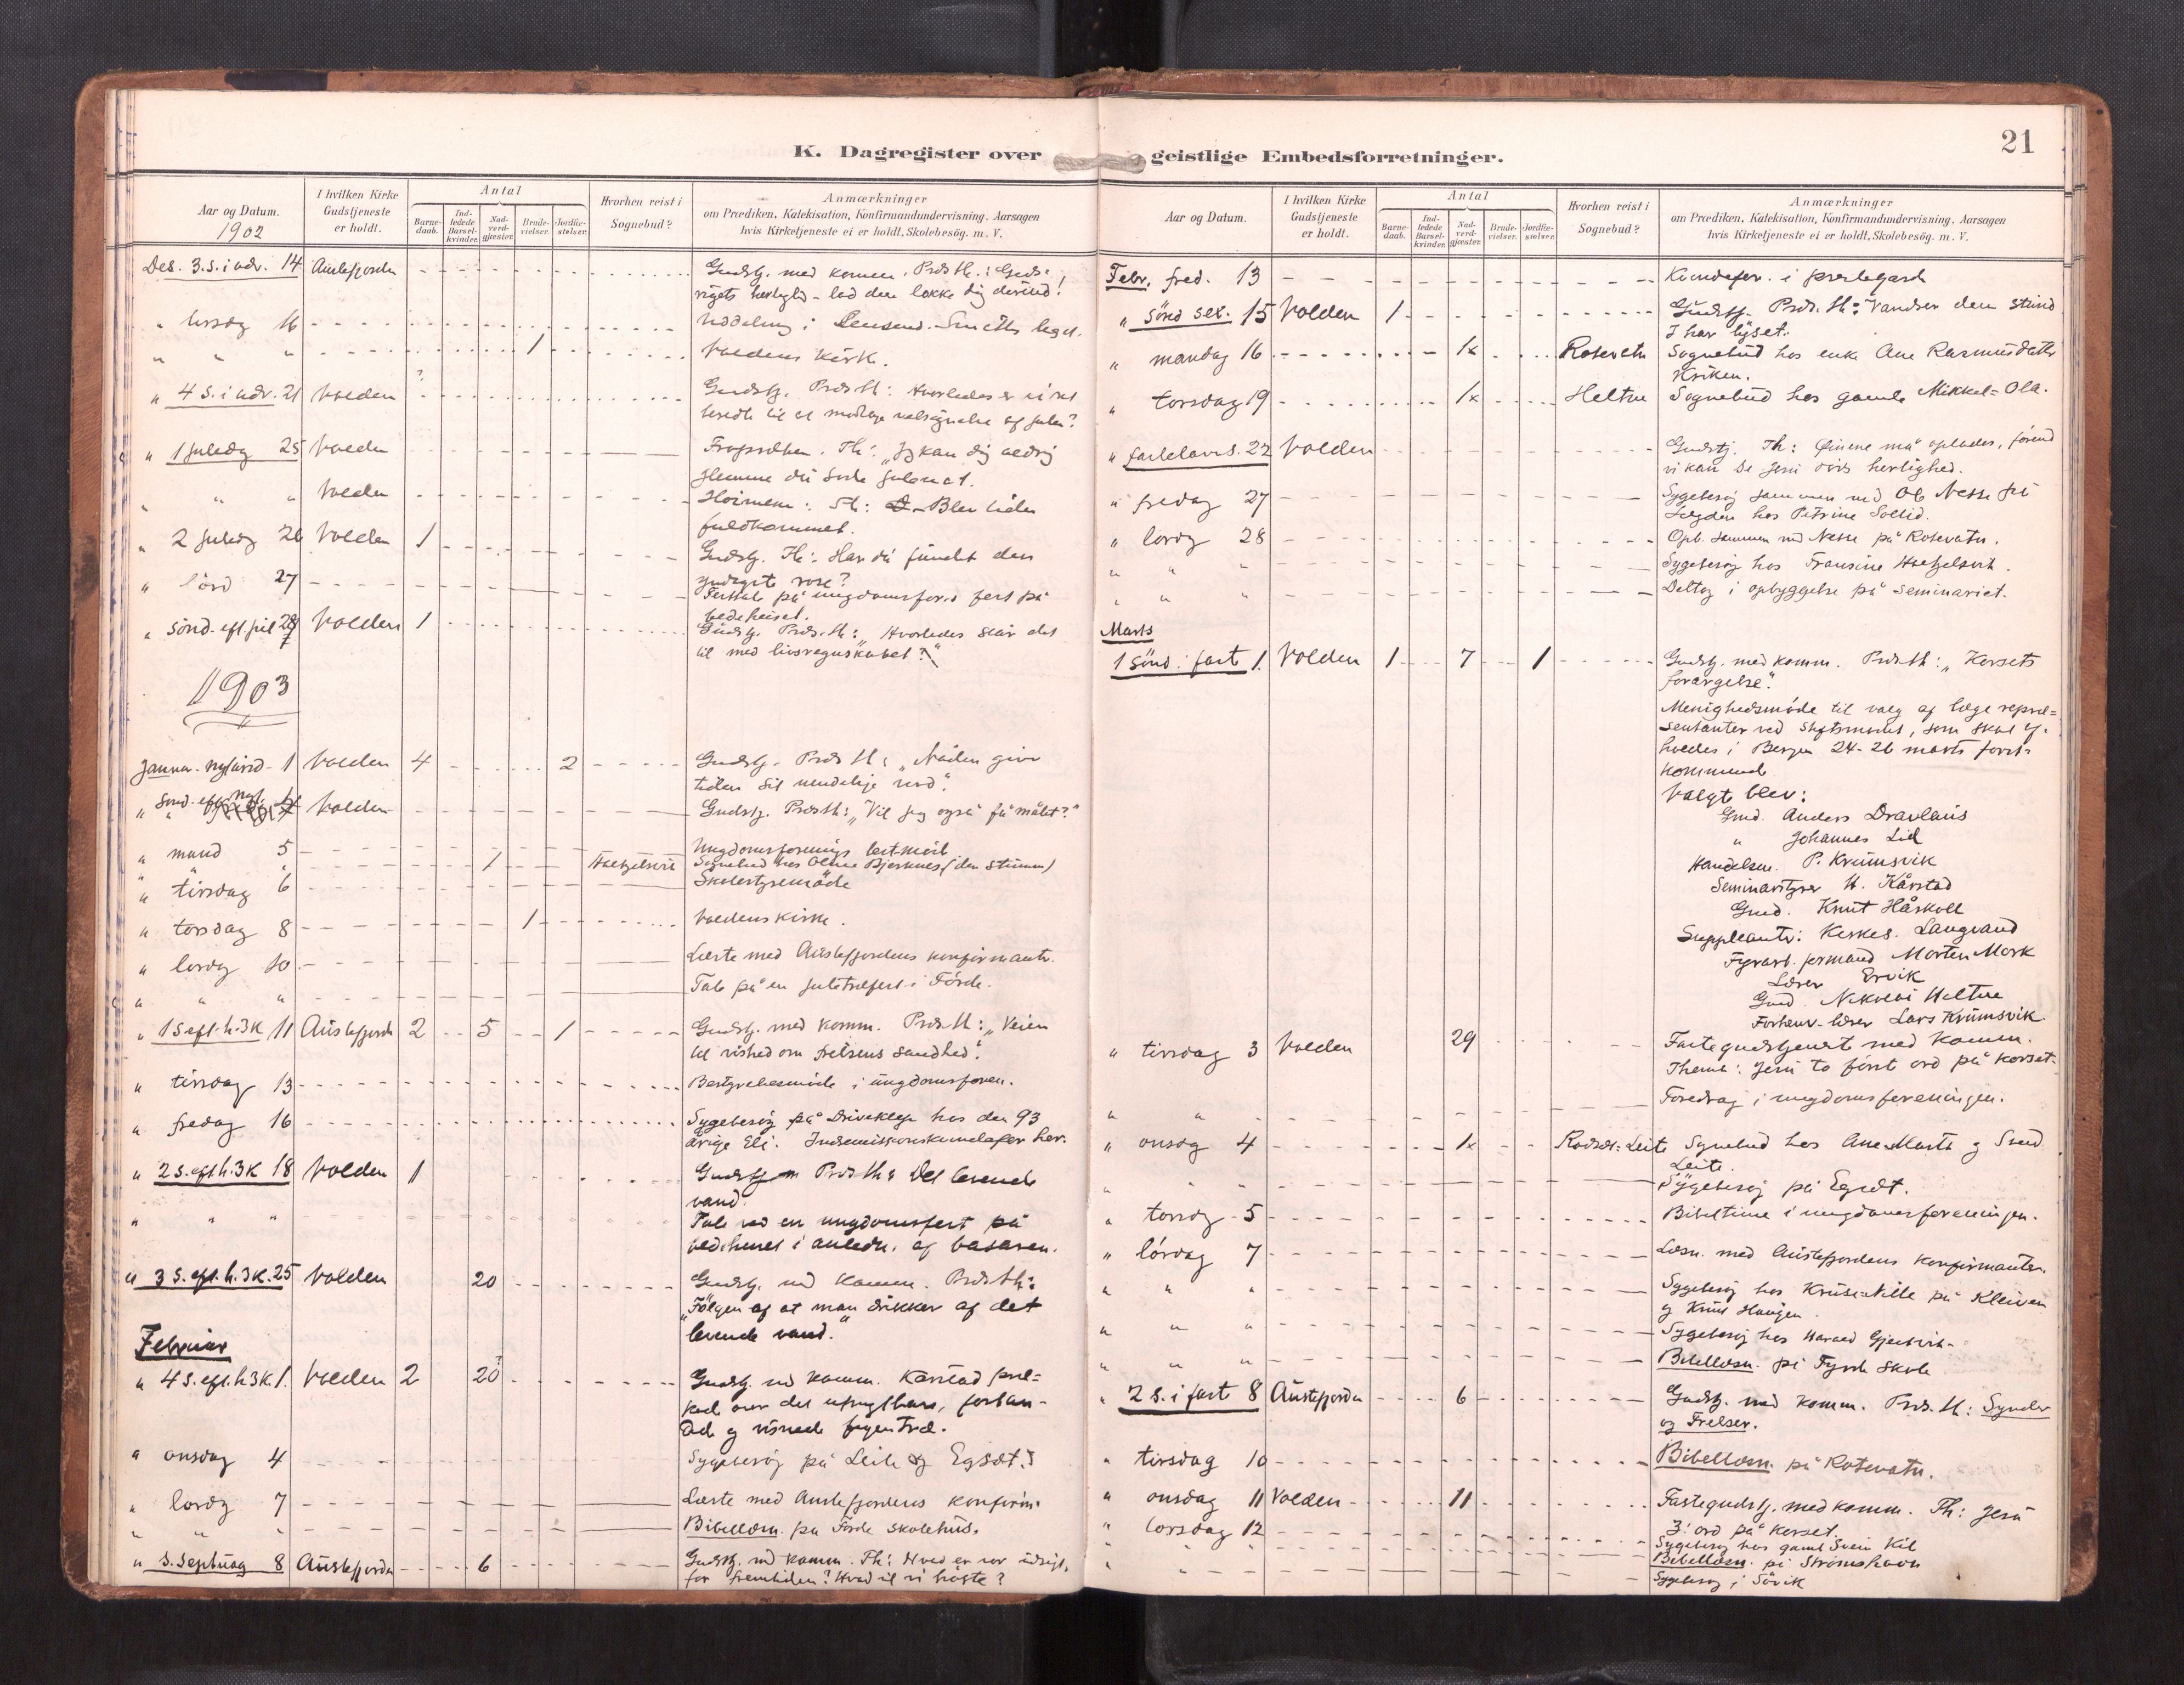 21
K. Dagregister over geistlige Embedsforretninger.
Aar og Datum.
1902
I hvilken Kirke Gudstjeneste er holdt.
Antal
Barnedaab.
Indledede Barselkvinder.
Nadverdgjæster.
Brudevielser.
Jordfæstelser.
Hvorhen reist i Sognebud?
Anmærkninger
om Prædiken, Katekisation, Konfirmandundervisning. Aarsagen
hvis Kirketjeneste ei er holdt, Skolebesög. m. V.
Des. 3. S. i adv. 14 Austefjorden Gudstj. med komm. Præs th.: Guds-
rigets herlighed - lad den lokke dig derind!
" tirsdag 16
" " " 1 Voldens kirk.
" 4 S. i adv. 21 Volden Gudstj. Præs th: Hvorledes er vi ret
beredte til at modtage velsignelse af julen?
" 1 juledag 25 Volden Froprædken. Th: "Jeg kan dig aldrig
glemme du søde julenat.
" " " Volden Høimesse: Th: Blev tiden
fuldkommet.
" 2 juledag 26 Volden 1 Gudstj. Th: Har du fundet den
yndigste rose?
" lörd 27 Festtale på ungdomsforen fest på
bedehuset.
" sönd. eft jul 28 Volden 1 Gudstj. Præs. th: "Hvorledes står det
til med livsregnskabet?"
1903
Januar. nytårsd. 1 Volden 4 2 Gudstj. Præs th: "Nåden giver
tiden sit uendelige værd".
" Sønd. eft nyt. 4 Volden Gudstj. Præs th: "Vil jeg også få målet?"
" mand 5 Ungdomsforenings
" " " 1 Sognebud hos Oline Bjerknes (den stumme)
" tirsdag 6 Skolestyremöde
" torsdag 8 1 Voldens kirke.
" lordg 10 Læste med Austefjordens konfirmanter.
" " " Tale på en juletræfest i Förde.
" 1 S. eft. h. 3 K 11 Austefjorden 2 5 1 Gudstj. med komm. Præs. th: "Veien
til vished om frelsens sandhed".
" tirsdag 13 Bestyrelsesmöde i ungdomsforen.
" fredag 16 Sygebesög på Driveklepp hos den 93
årige Eli. Indremissionskundefor her.
" 2 S. eft h. 3 K 18 Volden 1 Gudstj. Præs th: Det levende
vand.
" " " Tale ved en ungdomsfest på
bedehuset i anledn. af basaren.
" 3 S. eft. h. 3 K. 25 Volden 20 Gudstj. med komm. Præs th:
"Fölgen af at man drikker af det
levende vand."
Februar
" 4 S. eft. h 3 K 1. Volden 2 20? Gudstj. med komm. Kårstad præ=
kede over det ufrugtbare, forban-
dede og visnede figentræ.
" onsdag 4 Sygebesög på Leite & Egset.
" lordg 7 Læste med Austefjordens konfirm.
" " " Bibellæsn. på Förde skolehus.
" S. Septuag 8 Austefjorden 6 Gudstj. med komm. Th: Hvad er vor udsigt
for fremtiden? Hvad vil vi høste?
Aar og Datum.
I hvilken Kirke Gudstjeneste er holdt.
Antal
Barnedaab.
Indledede Barselkvinder.
Nadverdgjæster.
Brudevielser.
Jordfæstelser.
Hvorhen reist i Sognebud?
Anmærkninger
om Prædiken, Katekisation, Konfirmandundervisning, Aarsagen
hvis Kirketjeneste ei er holdt, Skolebesög. m. V.
Febr. fred. 13 i prestegard
" sönd sex. 15 Volden 1 Gudstj. Præd. th: "Vandrer den stund
I har lyset.
" mandag 16 1x Rotevatn Sognebud hos enke Ane Rasmusdatter
Kriken.
" torsdag 19 1x Heltne Sognebud hos gamle Mikkel=Ola.
" fastelavns. 22 Volden Gudstj. Th: Öinene må oplades, førend
vi kan se Jesu dörs herlighed.
" fredag 27 Sygebesög sammen med Ole Nesse
hos Petrine Sollid.
" lordg 28 Opb. sammen med Nesse på Rotevatn.
" " " Sygebesög hos Fransine
" " " Deltog i opbyggelse på seminariet.
Marts
1 Sönd. i fast 1. Volden 1 7 1 Gudstj. med komm. Præs th: "Korsets
forargelse".
Menighedsmöde til valg af læge repræ=
sentanter ved stiftsmødet, som skal af-
holdes i Bergen 24-26 marts först-
kommende
Valgt blev:
Gmd. Anders Dravlaus
" Johannes Lid
Handelsm. P. Krumsvik
Seminarstyrer H. Kårstad
Gmd. Knut Håskoll
Suppleanter: Kirkes. Langvand
Fyrarb. formand Morten Mork
Lærer Ervik
Gmd. Nikolai Heltne
Forhenv. lærer Lars Krumsvik
" tirsdag 3 Volden 29 Fastegudstjeneste med komm.
Thema: Jesu to först ord på korset.
" " Foredrag i ungdomsforeningen.
" onsdg 4 1x Leite Sognebud hos Ane Marte og Sved
Leite.
" " " Sygebesög på Egset.
" torsdg 5 Bibeltime i ungdomsforeningen.
" lördag 7 Læsn. med Austefjordens konfirmanter.
" " " Sygebesög hos på Kleiven
og Knut Haugen.
" " " Sygebesög hos Harald
" " " Bibellæsn. på Fyrde skole
" 2 S. i fast 8 Austefjorden 6 Gudstj. med komm. Præs. th: Synder
og Frelser.
" tirsdag 10 Bibellæsn. på Rotevatn.
" onsdag 11 Volden 11 Fastegudstj. med komm. Th: Jesu
3! ord på korset.
" torsdag 12 Sygebesög hos gamle Svein Kil
" " " Bibellæsn. på Strömshavn
Sygebesög i Sövik